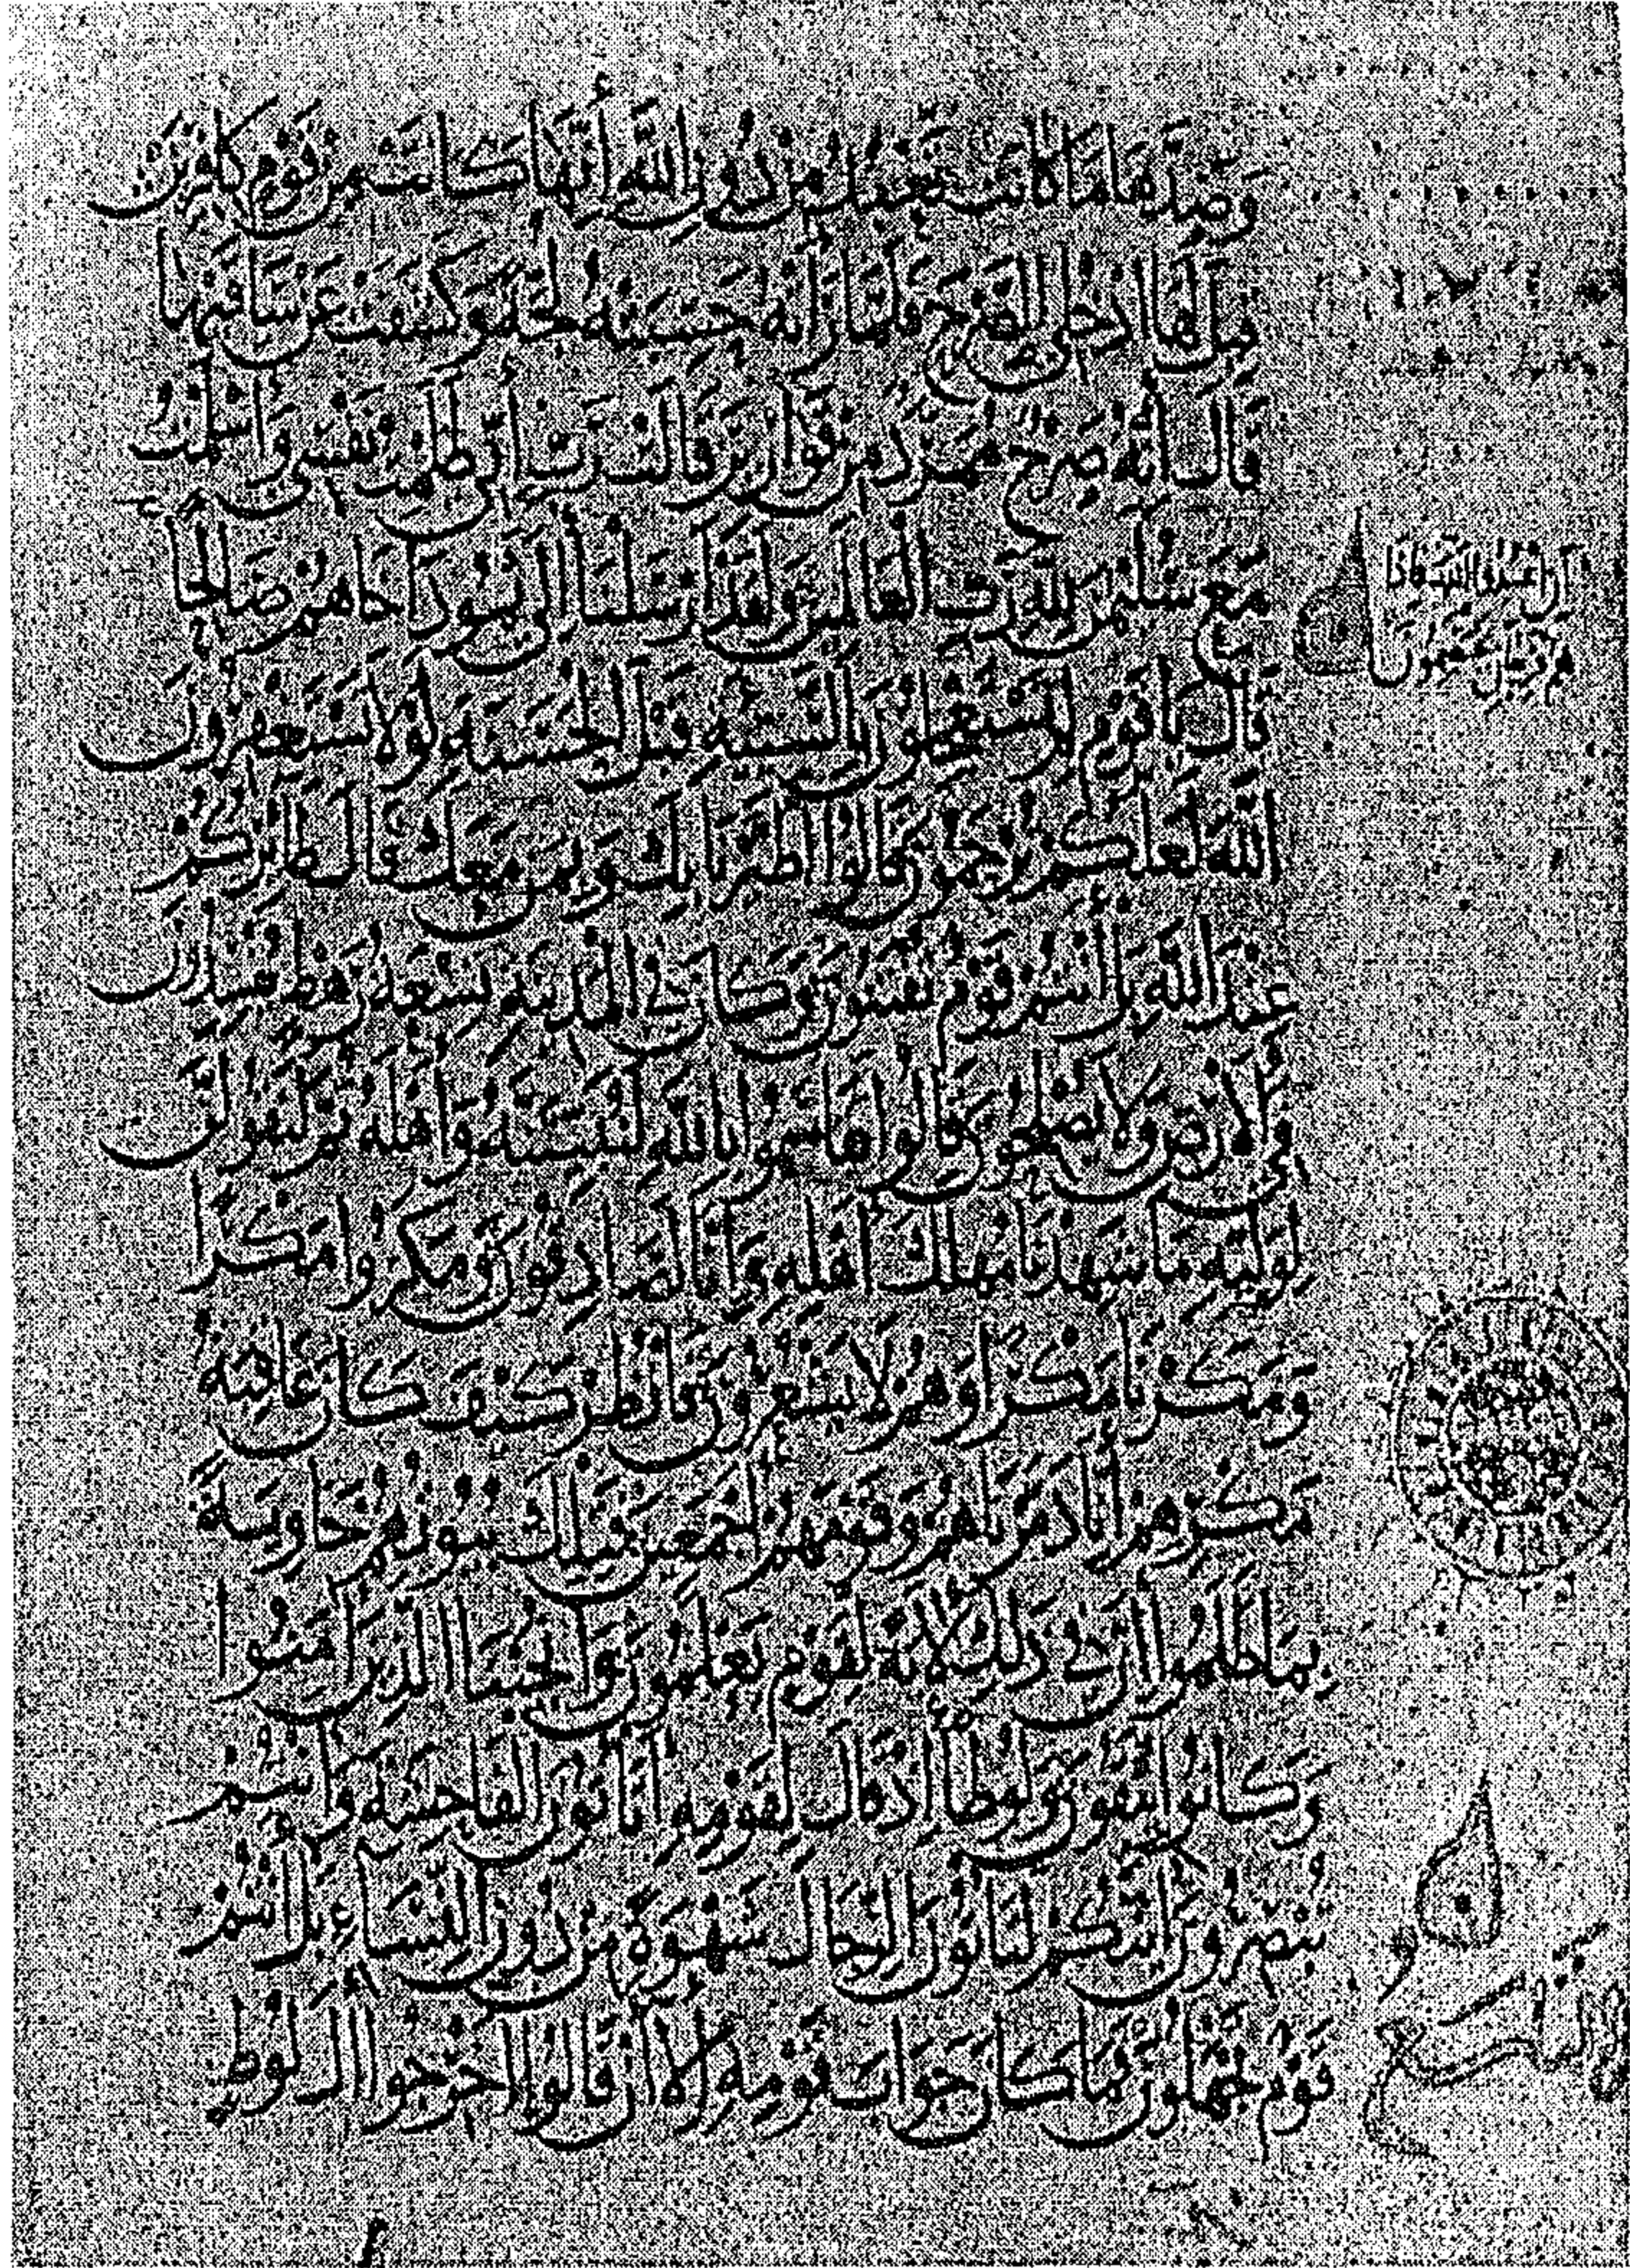 وَصَدَّهَا مَا كَانَت تَّعْبُدُ مِن دُونِ اللَّهِ إِنَّهَا كَانَتْ مِن قَوْمٍ كَافِرِينَ
قِيلَ لَهَا ادْخُلِي الصَّرْحَ فَلَمَّا رَأَتْهُ حَسِبَتْهُ لُجَّةً وَكَشَفَتْ عَن سَاقَيْهَا
قَالَ إِنَّهُ صَرْحٌ مُّمَرَّدٌ مِّن قَوَارِيرَ قَالَتْ رَبِّ إِنِّي ظَلَمْتُ نَفْسِي وَأَسْلَمْتُ
مَعَ سُلَيْمَنَ لِلَّهِ رَبِّ الْعَالَمِينَ وَلَقَدْ أَرْسَلْنَا إِلَى ثَمُودَ أَخَاهُمْ صَالِحًا
قَالَ يَا قَوْمِ لِمَ تَسْتَعْجِلُونَ بِالسَّيِّئَةِ قَبْلَ الْحَسَنَةِ لَوْلَا تَسْتَغْفِرُونَ
اللَّهَ لَعَلَّكُمْ تُرْحَمُونَ قَالُوا اطَّيَّرْنَا بِكَ وَبِمَن مَّعَكَ قَالَ طَائِرُكُمْ
عِندَ اللَّهِ بَلْ أَنتُمْ قَوْمٌ تُفْتَنُونَ وَكَانَ فِي الْمَدِينَةِ تِسْعَةُ رَهْطٍ يُفْسِدُونَ
فِي الْأَرْضِ وَلَا يُصْلِحُونَ قَالُوا تَقَاسَمُوا بِاللَّهِ لَنُبَيِّتَنَّهُ وَأَهْلَهُ ثُمَّ لَنَقُولَنَّ
لِوَلِيِّهِ مَا شَهِدْنَا مَهْلِكَ أَهْلِهِ وَإِنَّا لَصَادِقُونَ وَمَكَرُوا مَكْرًا
وَمَكَرْنَا مَكْرًا وَهُمْ لَا يَشْعُرُونَ فَانظُرْ كَيْفَ كَانَ عَاقِبَةُ
مَكْرِهِمْ أَنَّا دَمَّرْنَاهُمْ وَقَوْمَهُمْ أَجْمَعِينَ فَتِلْكَ بُيُوتُهُمْ خَاوِيَةً
بِمَا ظَلَمُوا إِنَّ فِي ذَلِكَ لَآيَةً لِّقَوْمٍ يَعْلَمُونَ وَأَنجَيْنَا الَّذِينَ آمَنُوا
وَكَانُوا يَتَّقُونَ وَلُوطًا إِذْ قَالَ لِقَوْمِهِ أَتَأْتُونَ الْفَاحِشَةَ وَأَنتُمْ
تُبْصِرُونَ أَئِنَّكُمْ لَتَأْتُونَ الرِّجَالَ شَهْوَةً مِّن دُونِ النِّسَاءِ بَلْ أَنتُمْ
قَوْمٌ تَجْهَلُونَ فَمَا كَانَ جَوَابَ قَوْمِهِ إِلَّا أَن قَالُوا أَخْرِجُوا آلَ لُوطٍ